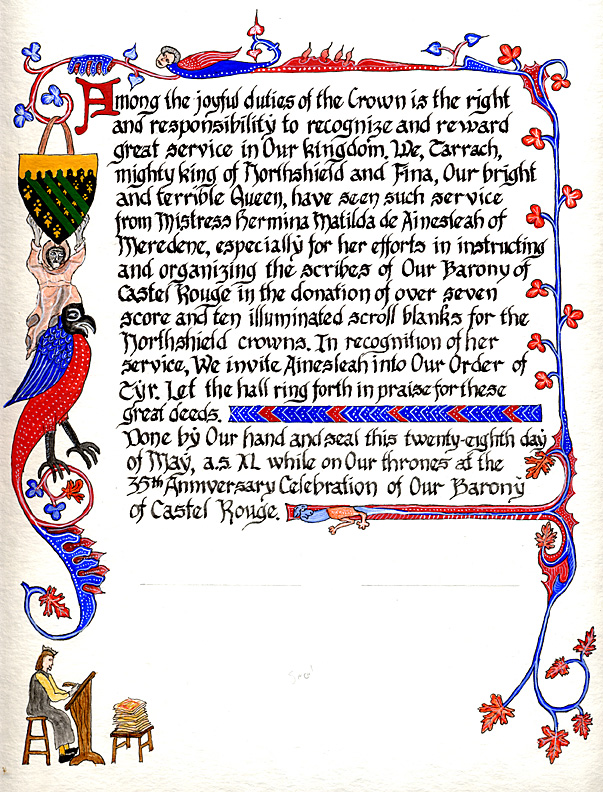 Among the joyful duties of the Crown is the right
and responsibility to recognize and reward
great service in Our kingdom. We, Tarrach,
mighty king of Northshield and Fina, Our bright
and terrible Queen, have seen such service
from Mistress Hermina Matilda de Ainesleah of
Meredene, especially for her efforts in instructing
and organizing the scribes of Our Barony of
Castel Rouge in the donation of over seven
score and ten illuminated scroll blanks for the
Northshield crowns. In recognition of her
service, We invite Ainesleah into Our Order of
Tyr. Let the hall ring forth in praise for these
great deeds.
Done by Our hand and seal this twenty-eighth day
of May, a.s. XL while on Our thrones at the
35th Anniversary Celebration of Our Barony
of Castel Rouge.